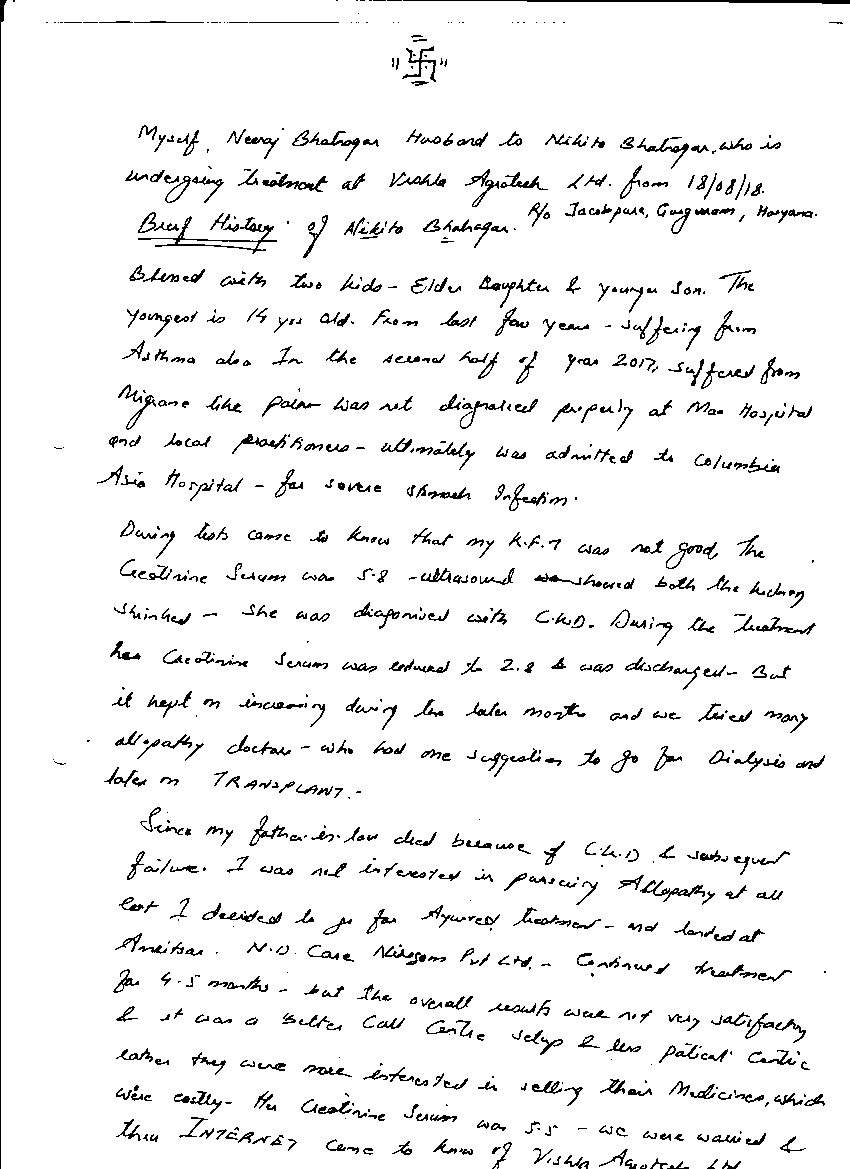 " 卐 "
Myself, Neeraj Bhatnagar Husband to Nikita Bhatnagar, who is
undergoing treatment at Vishla Agrotech Ltd. from 18/08/18.
R/o Jacobpura, Gurgugram, Haryana.
Brief History of Nikita Bhatnagar.
Blessed with two kids - Elder Daughter & younger Son. The
youngest is 14 yrs old. From last few years - suffering from
Asthma also In the second half of year 2017, suffered from
Migrane like pain was not diagnoised properly at Max Hospital
and local practitioners - ultimately was admitted to Columbia
Asia Hospital - for severe stomach Infection.
During tests came to know that my K.F.T was not good, The
Creatinine Serum was 5.8 - ultrasound showed both the kidney
shrinked - She was diagonised with C.K.D. During the Treatment
her Creatinine Serum was reduced to 2.8 & was discharged - But
it kept on increasing during the later months and we tried many
allopathy doctors - who had one suggestion to go for Dialysis and
later on TRANSPLANT. -
Since my father-in-law died because of C.K.D & subsequent
failure. I was not interested in pursuing Allopathy at all
last I decided to go for Ayurved treatment - and landed at
Amritsar. N.D. Care Nirogam Pvt Ltd. - Continued treatment
for 4-5 months - but the overall results were not very satisfactory
& it was a Better Call Centre setup & less patient Centric
rather they were more interested in selling their Medicines, which
were costly - Her Creatinine Serum was 5.5 - we were worried &
thru INTERNET came to know of Vishla Agrotech Ltd